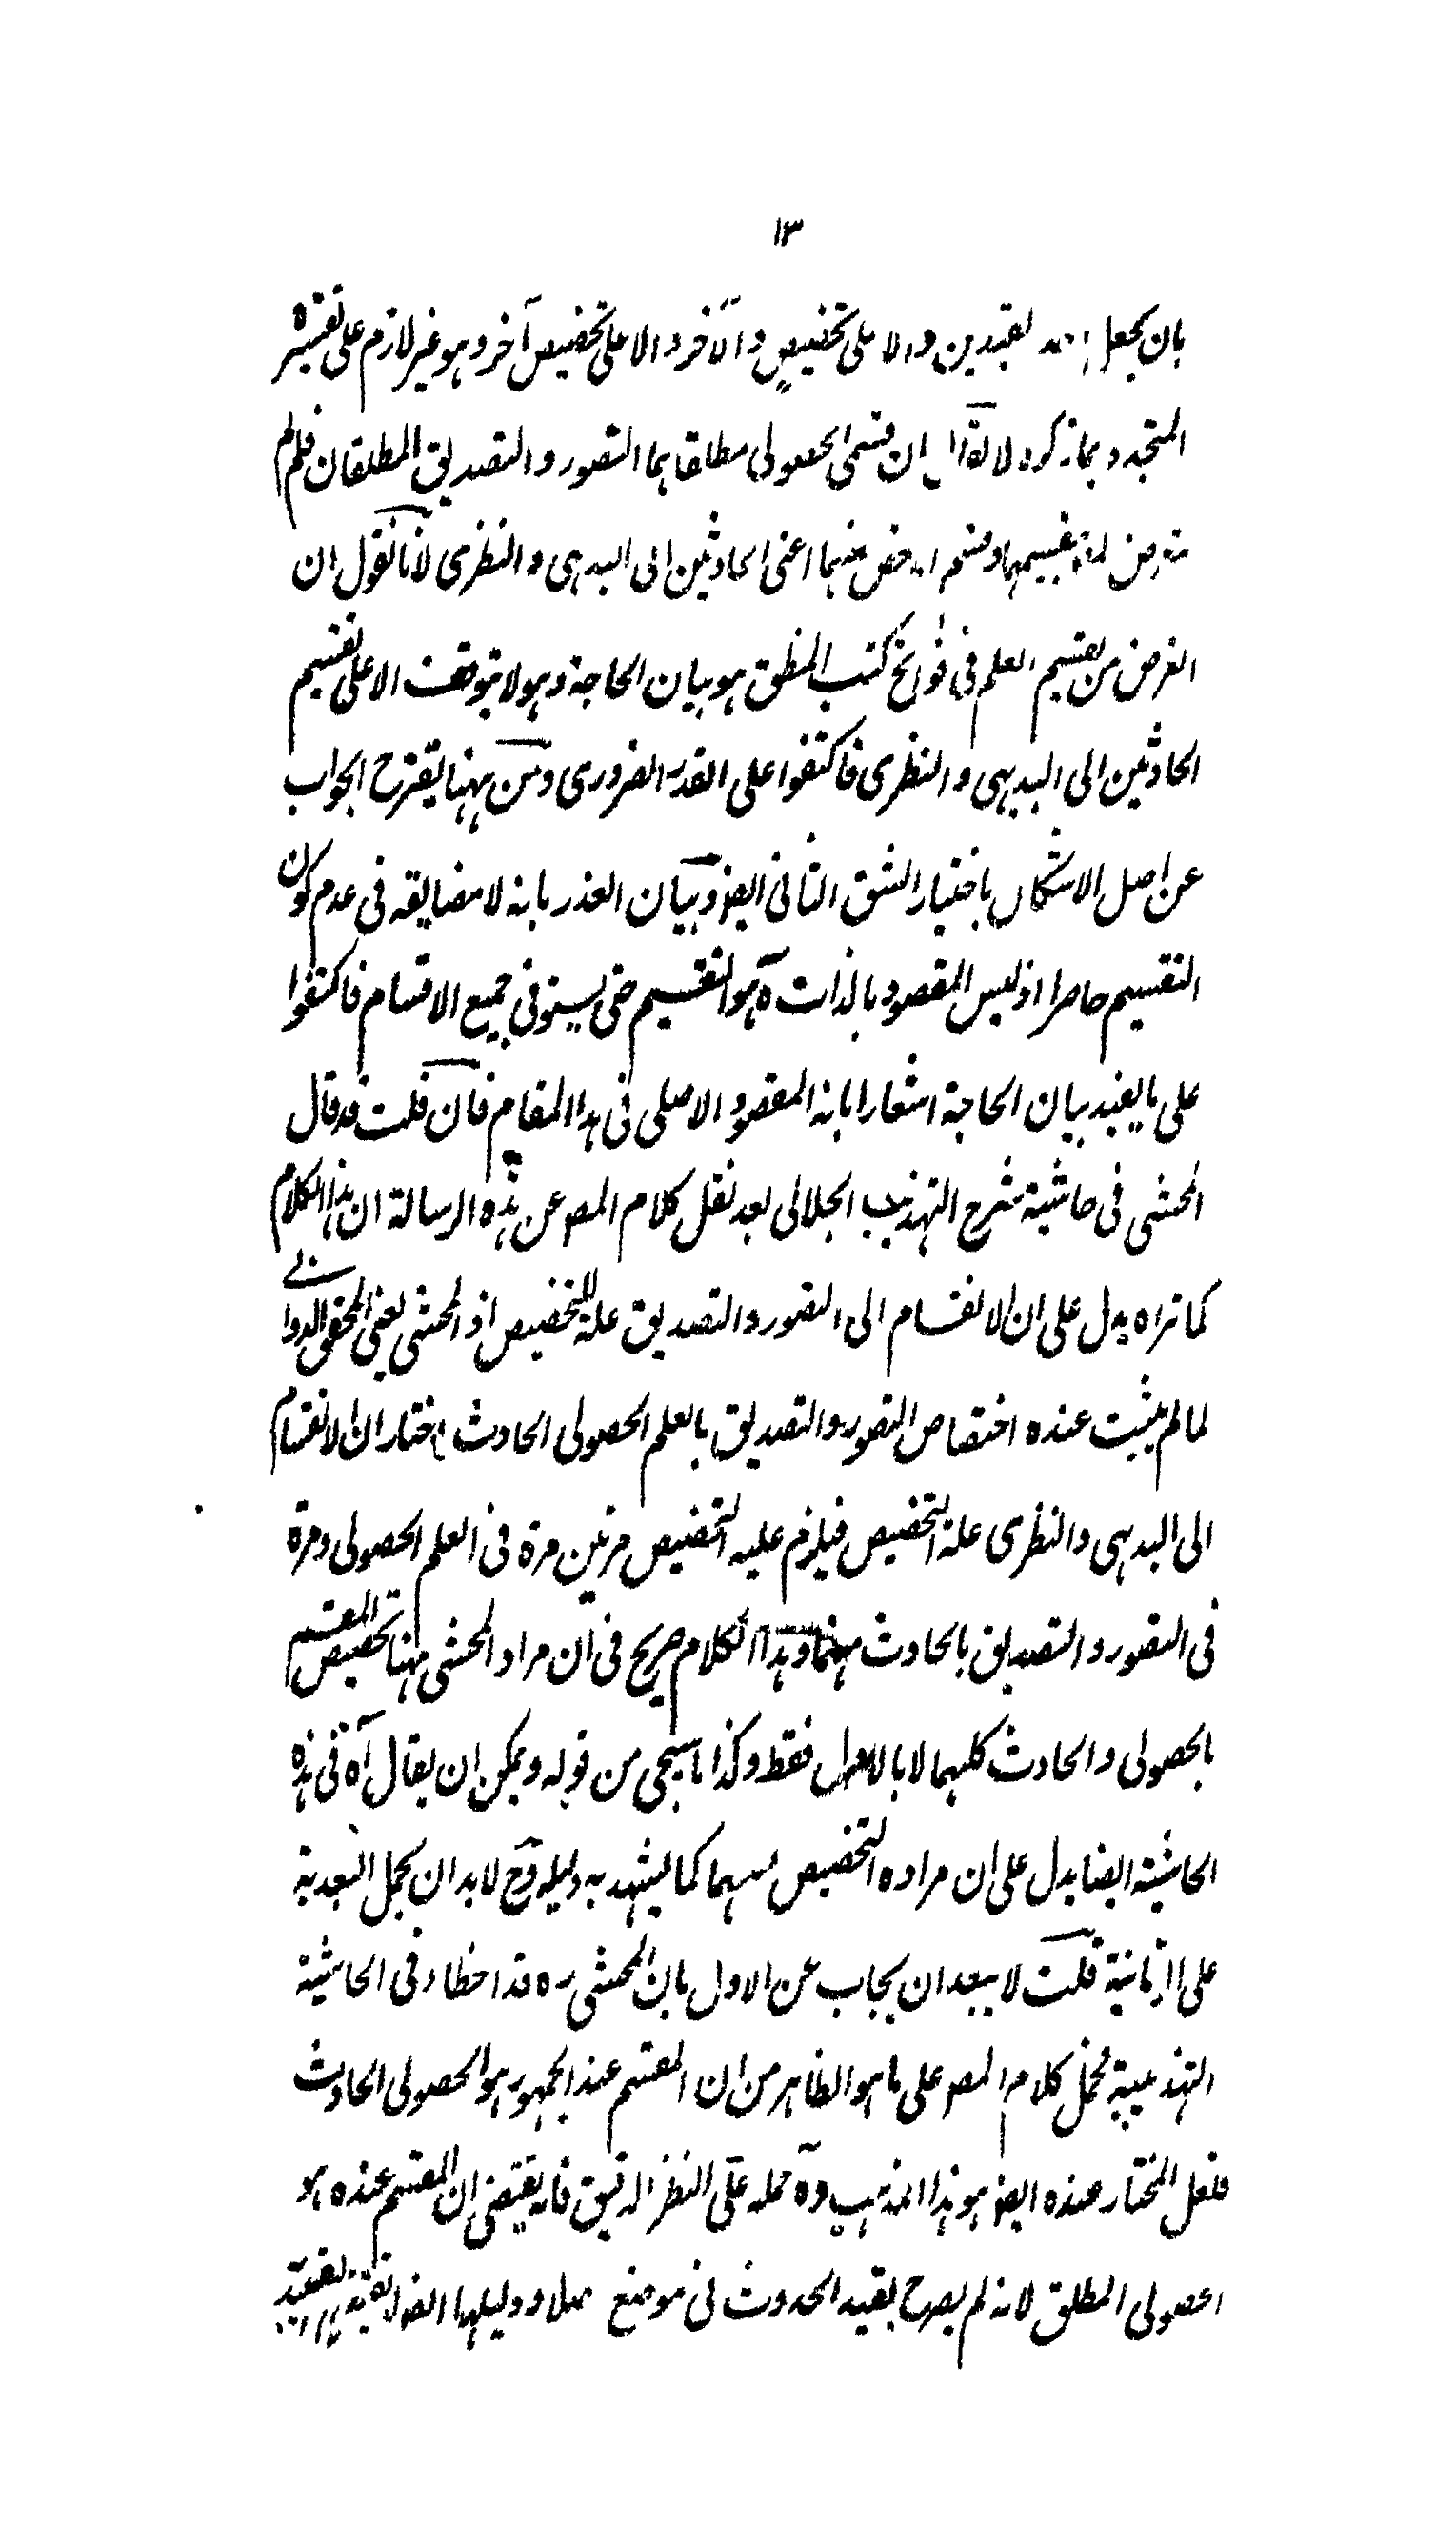 ١٣
بان يجعل القيدين دالا على تخصيص والآخر دالا على تخصيص آخر وهو غير لازم على تفسيره
المتجدد بما ذكره لا يقال ان قسمى الحصولى مطلقا هما التصور والتصديق المطلقان فلم
تقسيمهما وقسم الاخص منهما اعنى الحادثين الى البديهى والنظرى لانا نقول ان
الغرض من تقسيم العلم فى فواتح كتب المنطق هو بيان الحاجة وهو لا يتوقف الا على تقسيم
الحادثين الى البديهى والنظرى فاكتفوا على القدر الضرورى ومن ههنا يقترح الجواب
عن اصل الاشكال باختيار الشق الثانى ايضو بيان العذر بانه لا مضايقه فى عدم كون
التقسيم حاصرا اذ ليس المقصود بالذات ههو التقسيم حتى يستوفى جميع الاقسام فاكتفوا
على ما يفيد بيان الحاجة اشعارا بانه المقصود الاصلى فى هذا المقام فان قلت قد قال
المحشى فى حاشية شرح التهذيب الجلالى بعد نقل كلام المصو عن هذه الرسالة ان هذا الكلام
كما تراه يدل على ان الانقسام الى التصور والتصديق علة للتخصيص اذ المحشى يعنى المحقق الدوانى
لما لم يثبت عنده اختصاص التصور والتصديق بالعلم الحصولى الحادث اختار ان الانقسام
الى البديهى والنظرى علة التخصيص فيلزم عليه التخصيص مرتين مرة فى العلم الحصولى ومرة
فى التصور والتصديق بالحادث منهما وهذا الكلام صريح فى ان مراد المحشى ههنا تخصيص المقسم
بالحصولى والحادث كليهما لا بالاول فقط وكذا ما سيجى من قوله ويمكن ان يقال آه فى هذه
الحاشية ايضا يدل على ان مراده التخصيص بهما كما يشهد به دليله وح لا بد ان يحمل البعدية
على الزمانية قلت لا يبعد ان يجاب عن الاول بان المحشى ره قد اخطاء فى الحاشية
التهذيبية فحمل كلام المصو على ما هو الظاهر من ان المقسم عند الجمهور هو الحصولى الحادث
فلعل المختار عنده ايضو هو هذا المذهب وه حمله على النظر الدقيق فانه يقتضى ان المقسم عنده هو
الحصولى المطلق لانه لم يصرح بقيد الحدوث فى موضع اصلا ودليلها ايضا